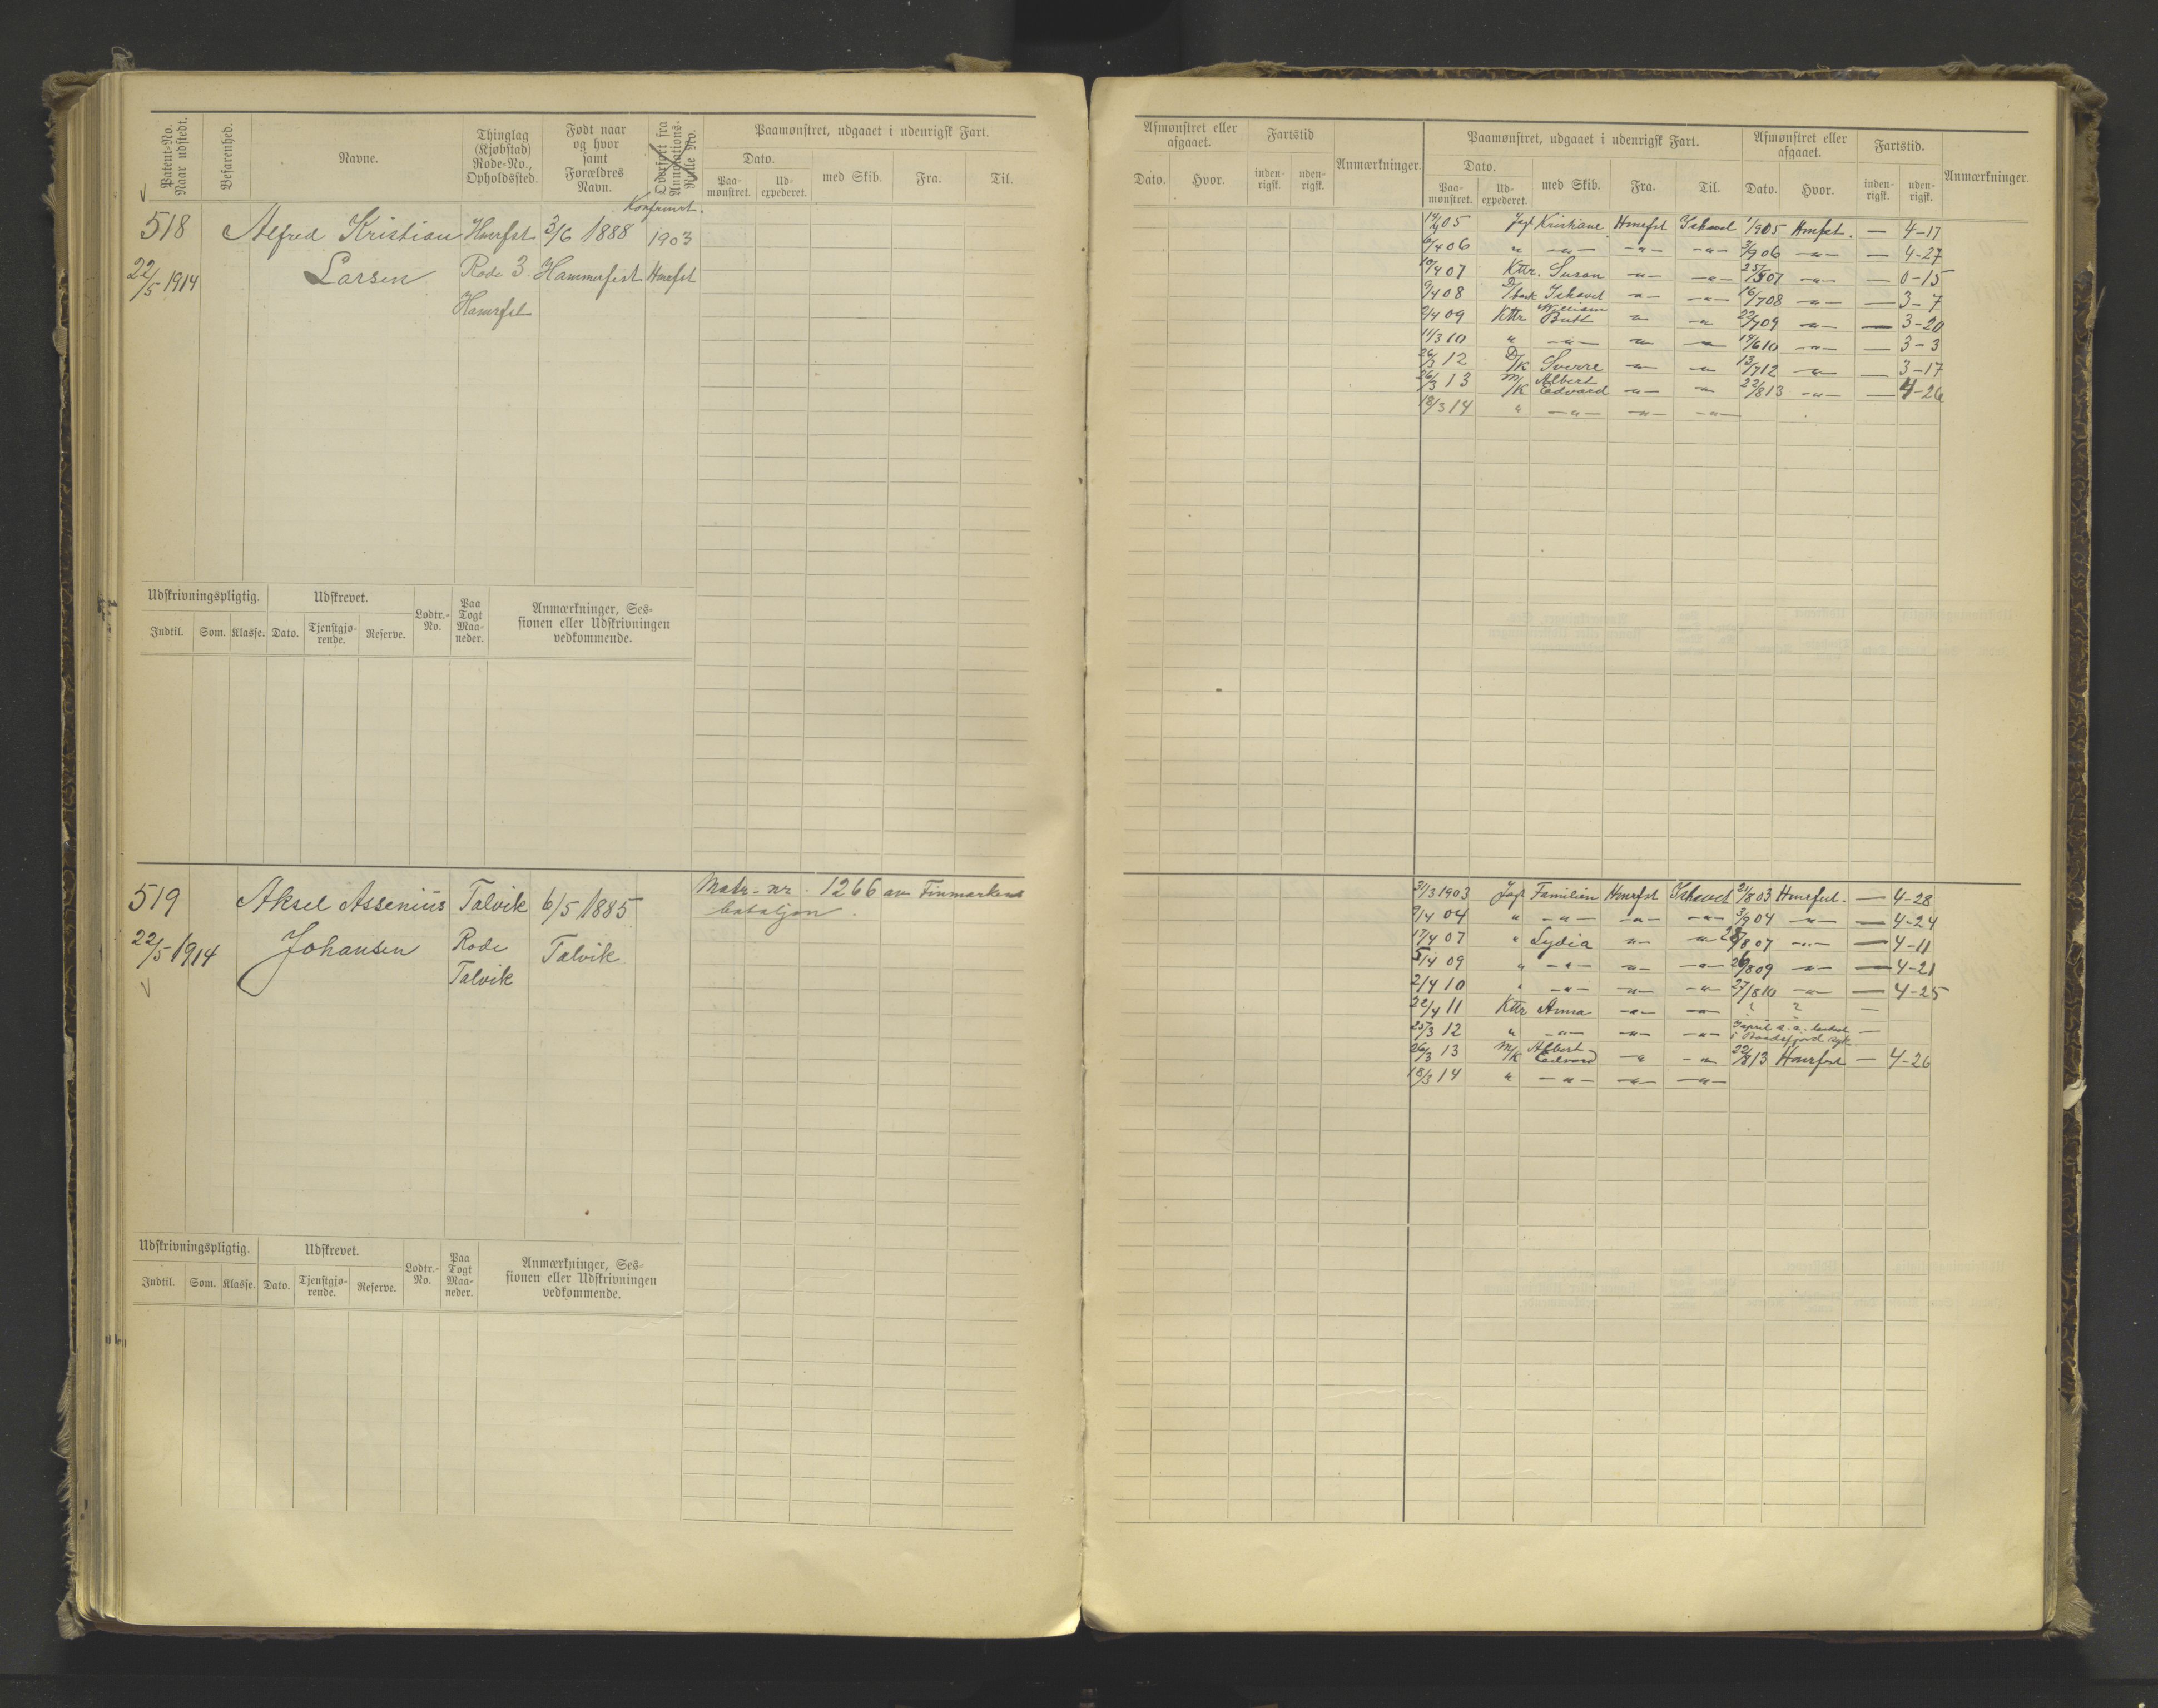 Patent-No. Naar udstedt.
Befarenhed.
Navne.
Thinglag (Kjøbstad) Rode-No., Opholdssted.
Født naar og hvor samt Forældres Navn.
Overført fra Annotations-Rulle No.
Konfirmrt.
Paamønstret, udgaaet i udenrigsk Fart.
Dato.
Paa-mønstret. Ud-expederet. med Skib. Fra. Til.
518 Alfred Kristian Hmrfst 3/6 1888 1903
22/5 1914 Larsen Rode 3. Hammerfest Hmrfst
Hamrfst
Udskrivningspligtig. Udskrevet. Lodtr.-No. Paa Togt Maa-neder. Anmærkninger, Ses-sionen eller Udskrivningen vedkommende.
Indtil. Som. Klasse. Dato. Tjenstgjø-rende. Reserve.
519 Aksel Assenius Talvik 6/5 1885 Matr-nr. 1266 av Finmarkens
bataljon.
22/5 1914 Johansen Rode Talvik
Talvik
Udskrivningspligtig. Udskrevet. Lodtr.-No. Paa Togt Maa-neder. Anmærkninger, Ses-sionen eller Udskrivningen vedkommende.
Indtil. Som. Klasse. Dato. Tjenstgjø-rende. Reserve.
Afmønstret eller afgaaet. Fartstid Anmærkninger. Paamønstret, udgaaet i udenrigsk Fart. Afmønstret eller afgaaet. Fartstid. Anmærkninger.
Dato. Hvor. inden-rigsk. uden-rigsk. Dato. Paa-mønstret. Ud-expederet. med Skib. Fra. Til. Dato. Hvor. inden-rigsk. uden-rigsk.
14/4 05 Jagt Kristiane Hmrfst Ishavet 1/9 05 Hmfst. — 4-17
6/4 06 " —"— —"— —"— 3/9 06 —"— — 4-27
10/4 07 Kttr. Susan —"— —"— 25/4 07 —"— — 0-15
9/4 08 D/bark Ishavet —"— —"— 16/7 08 —"— — 3-7
2/4 09 Kttr William Butt —"— —"— 22/7 09 —"— — 3-20
11/3 10 " —"— —"— —"— 14/6 10 —"— — 3-3
26/3 12 D/K Sverre —"— —"— 13/7 12 —"— — 3-17
26/3 13 M/K Albert Edvard —"— —"— 22/8 13 —"— — 4-26
18/3 14 " —"— —"— —"—
31/3 1903 Jagt Familien Hmrfst Ishavet 21/8 03 Hmrfst. — 4-28
9/4 04 " —"— —"— —"— 3/9 04 —"— — 4-24
17/4 07 " Lydia —"— —"— 28/8 07 —"— — 4-11
5/4 09 " —"— —"— —"— 26/8 09 —"— — 4-21
2/4 10 " —"— —"— —"— 27/8 10 —"— — 4-25
22/4 11 Kttr Anna —"— —"— ? ? —
25/3 12 " —"— —"— —"— april s.a. landsat —
i Baadsfjord syk.
26/3 13 M/K Albert Edvard —"— —"— 22/8 13 Hmrfst — 4-26
18/3 14 " —"— —"— —"—